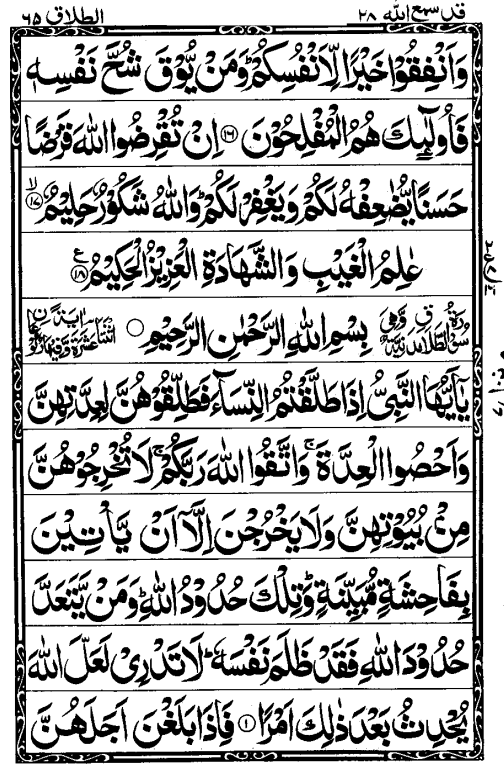 قد سمع الله ٢٨
الطلاق ٦٥
وَاَنْفِقُوْا خَيْرًا لِّاَنْفُسِكُمْ ؕ وَمَنْ يُّوْقَ شُحَّ نَفْسِهٖ
فَاُولٰٓئِكَ هُمُ الْمُفْلِحُوْنَ ﴿١٦﴾ اِنْ تُقْرِضُوا اللّٰهَ قَرْضًا
حَسَنًا يُّضٰعِفْهُ لَكُمْ وَيَغْفِرْ لَكُمْ ؕ وَاللّٰهُ شَكُوْرٌ حَلِيْمٌ ۙ ﴿١٧﴾
عٰلِمُ الْغَيْبِ وَالشَّهَادَةِ الْعَزِيْزُ الْحَكِيْمُ ﴿١٨﴾ ع
بِسْمِ اللّٰهِ الرَّحْمٰنِ الرَّحِيْمِ
يٰۤاَيُّهَا النَّبِيُّ اِذَا طَلَّقْتُمُ النِّسَآءَ فَطَلِّقُوْهُنَّ لِعِدَّتِهِنَّ
وَاَحْصُوا الْعِدَّةَ ۚ وَاتَّقُوا اللّٰهَ رَبَّكُمْ ۚ لَا تُخْرِجُوْهُنَّ
مِنْۢ بُيُوْتِهِنَّ وَلَا يَخْرُجْنَ اِلَّاۤ اَنْ يَّاْتِيْنَ
بِفَاحِشَةٍ مُّبَيِّنَةٍ ؕ وَتِلْكَ حُدُوْدُ اللّٰهِ ؕ وَمَنْ يَّتَعَدَّ
حُدُوْدَ اللّٰهِ فَقَدْ ظَلَمَ نَفْسَهٗ ؕ لَا تَدْرِيْ لَعَلَّ اللّٰهَ
يُحْدِثُ بَعْدَ ذٰلِكَ اَمْرًا ﴿١﴾ فَاِذَا بَلَغْنَ اَجَلَهُنَّ